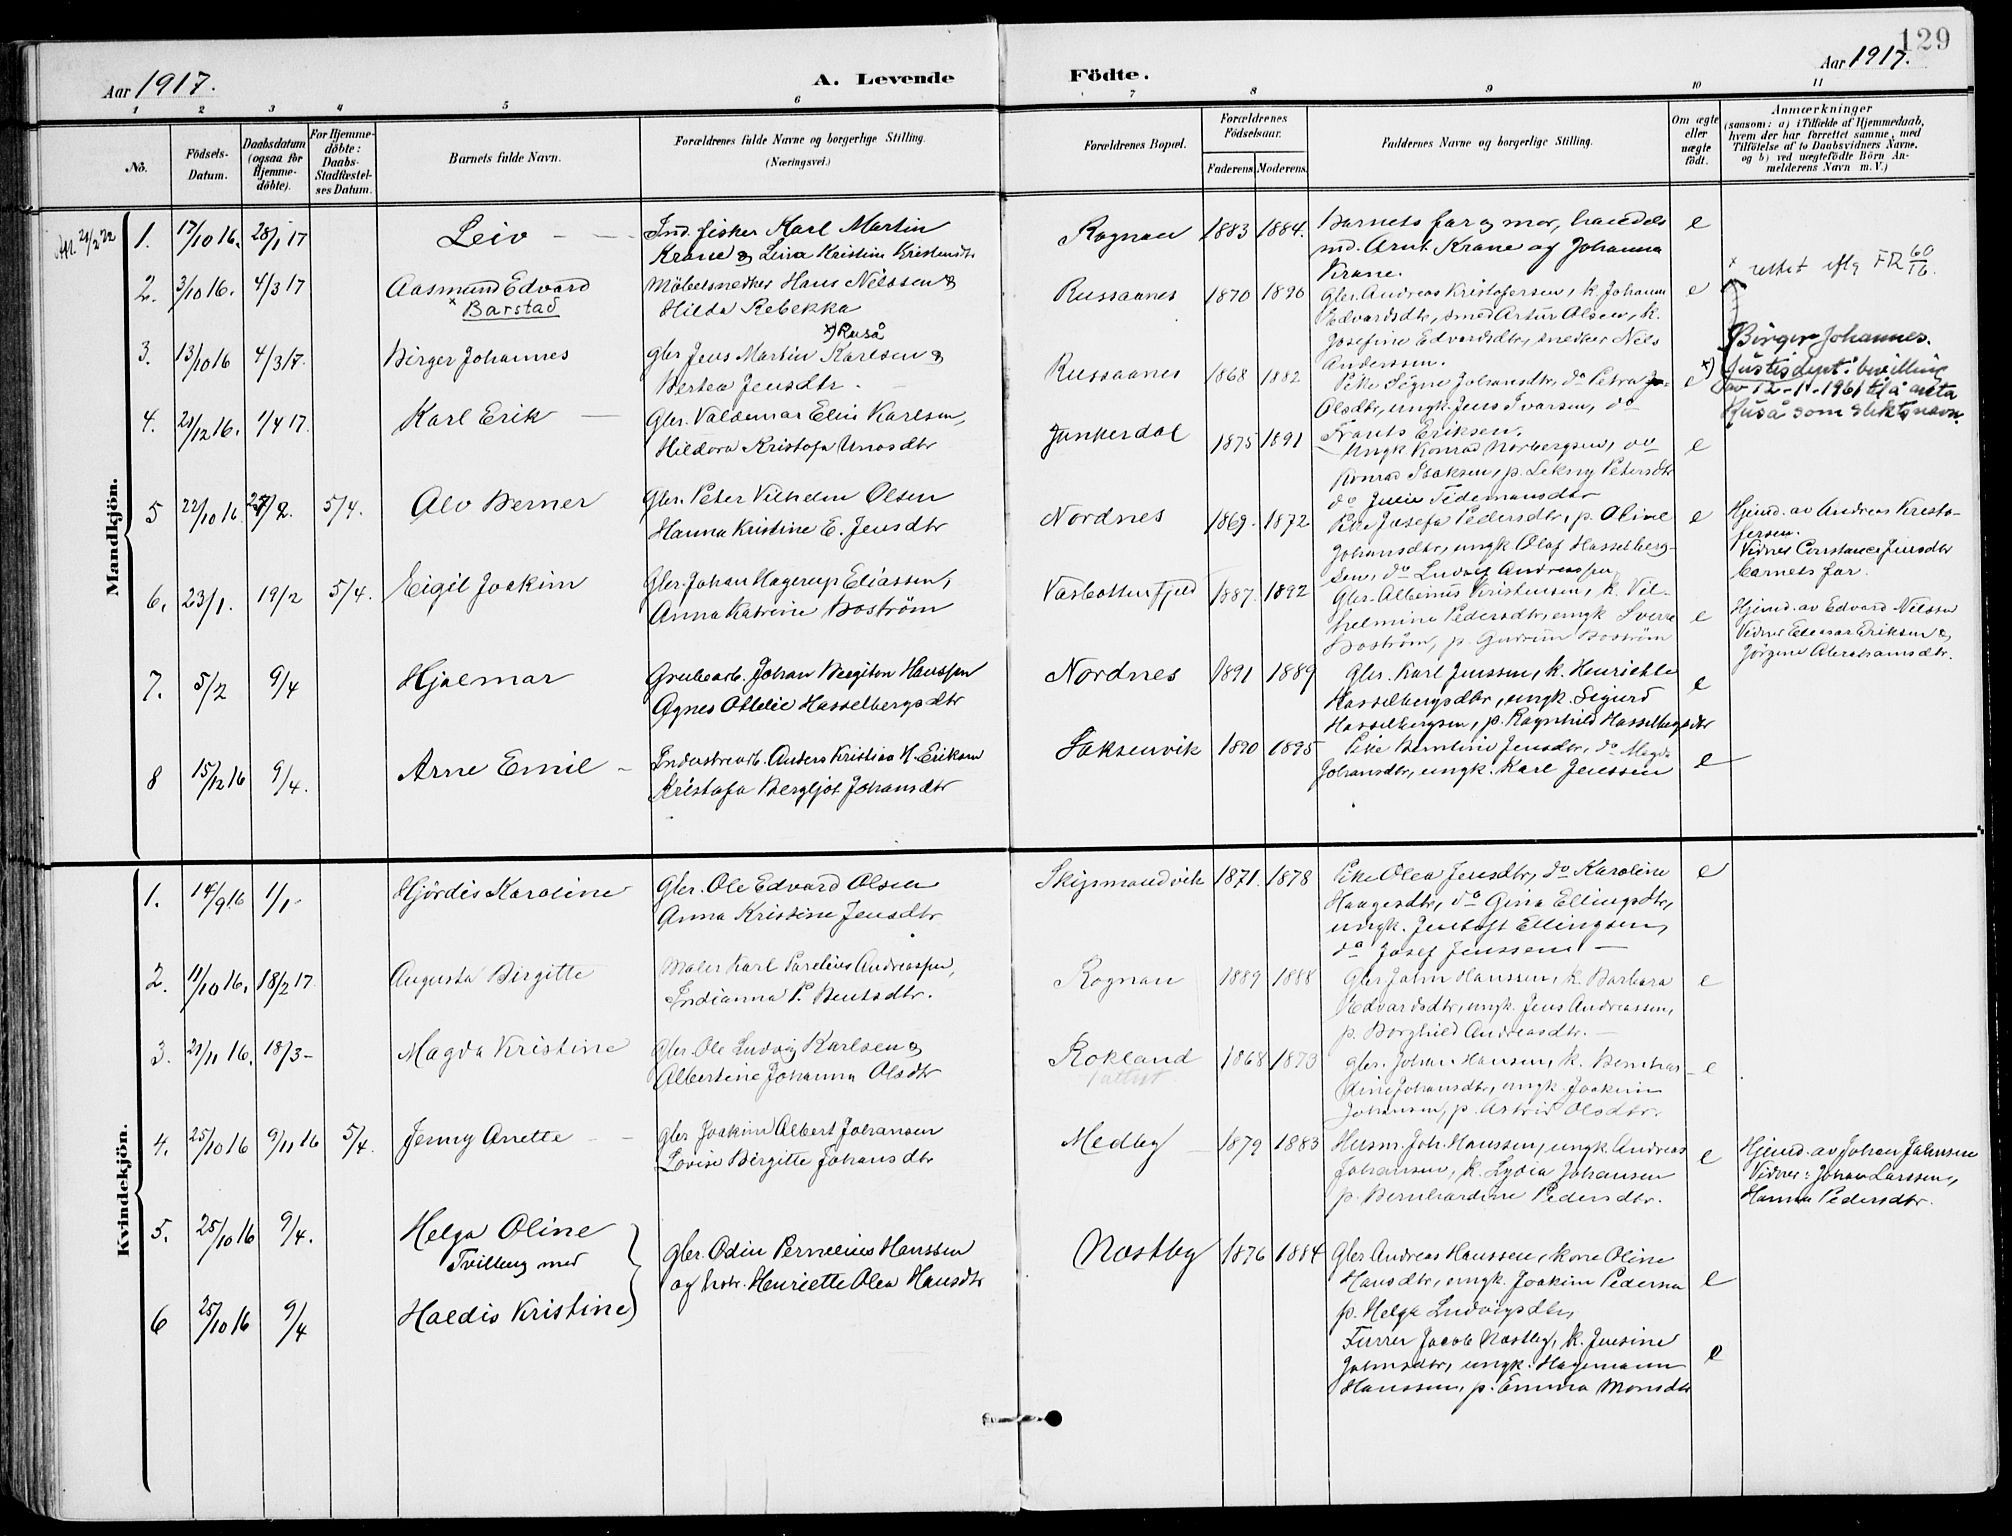 129
Aar 1917.
A. Levende
Födte.
Aar 1917.
1
2
3
4
5
6
7
8
9
10
11
No.
Födsels-
Datum.
Daabsdatum
(ogsaa for
Hjemme-
döbte).
For Hjemme-
döbte:
Daabs-
Stadfæstel-
ses Datum.
Barnets fulde Navn.
Forældrenes fulde Navne og borgerlige Stilling.
(Næringsvei.)
Forældrenes Bopæl.
Forældrenes
Födselsaar.
Faderens.
Moderens.
Faddernes Navne og borgerlige Stilling.
Om ægte
eller
uægte
födt.
Anmærkninger
(saasom: a) i Tilfælde af Hjemmedaab,
hvem der har forrettet samme, med
Tilföielse af to Daabsvidners Navne,
og b) ved uegtefödte Börn An-
melderens Navn m.V.)
Mandkjön.
1. 17/10 16. 28/1 17 Leiv
Ind. fisker Karl Martin
Krane & Lina Kristine
Rognan 1883 1884.
Barnets far og mor, handels
md. Arnt Krane og Johanna
Krane. e
2. 3/10 16. 4/3 17 Aasmund Edvard
x Barstad
Möbelsnedker Hans Nilssen &
Hilda Rebekka
Russaanes 1870 1890
Gbr. Andreas Kristofersen, k. Johanna
Edvardsdtr, smed Artur Olsen, k.
Josefine Edvardsdtr, snedker Nils
Anderssen. e
x rettet iflg FR 60/16.
3. 13/10 16 4/3 17. Birger Johannes
x) Ruså
Gbr Jens Martin Karlsen &
Bertea Jensdtr.
Russaanes 1868 1882
Pike Signe Johansdtr, do Petra
Olsdtr, ungk. Jens Ivarsen, do
Frants Eriksen. e
Birger Johannes.
x) Justisdept.s bevilling
av 12-1-1961 til å anta
Ruså som slektsnavn.
4. 21/12 16. 1/4 17. Karl Erik
Gbr. Valdemar Elius Karlsen,
Hildora Kristofa Unosdtr
Junkerdal 1875 1891
Ungk Konrad Norbergsen, do
Konrad Isaksen, p. Petersdtr
do Julie Tidemansdtr e
5 22/10 16 5/4. Alv Berner
Gbr. Peter Vilhelm Olsen
Hanna Kristine E. Jensdtr
Nordnes 1869. 1872
Pike Josefa Pedersdtr, p. Oline
Johansdtr, ungk Olaf Hasselberg-
sen, do Ludvig Andreassen e
Hjemd. av Andreas Kristo-
fersen.
Vidner Constance Jensdtr
barnets far.
6. 23/1. 19/2 5/4. Eigil Joakim
Gbr. Johan Hagerup Eliassen,
Anna Katrine Boström
Vasbottenfjeld 1887. 1892
Gbr. Albinus Kristensen, k. Vil-
helmine Pedersdtr, ungk Sverre
Boström, p. Gudrun Boström e
Hjemd. av Edvard Nilssen
Vidner Edvard Eriksen &
Jörgine Abrahamsdtr.
7. 5/2 9/4 Hjalmar
Grubearb. Johan Birgiton Hanssen
Agnes Otelie Hasselbergsdtr
Nordnes 1891 1889
Gbr. Karl Jenssen, k. Henriette
Hasselbergsdtr, ungk. Sigurd
Hasselbergsen, p. Ragnhild Hasselbergsdtr e
8 15/12 16 9/4. Arne Emil
Industriarb. Anders Kristian H. Eriksen
Kristofa Bergljot Johansdtr
Saksenvik 1890 1895
Pike Berntine Jensdtr, do Magda
Johansdtr, ungk. Karl Jenssen e
Kvindekjön.
1. 14/9 16 1/1 Hjördis Karoline
Gbr. Ole Edvard Olsen
Anna Kristine Jensdtr
Skigsmandvik 1871. 1878
Pike Olea Jensdtr, do Karoline
Haagesdtr, do Gina Ellingsdtr,
ungk. Jentoft Ellingsen,
do Josef Jenssen e
2. 11/10 16. 18/2 17 Augusta Birgitte
Maler Karl Parelius Andreassen,
Indianna P. Bentsdtr.
Rognan 1889 1888
Gbr John Hanssen, k. Barbara
Edvardsdtr, ungk. Jens Andreassen,
p. Borghild Andreasdtr. e
3. 21/11 16. 18/3 Magda Kristine
Gbr. Ole Ludvig Karlsen &
Albertine Johanna Olsdtr
Rokland 1868 1873
Gbr. Johan Hansen, k. Bernhar-
dine Johansdtr, ungk. Joakim
Johansen, p. Astrid Olsdtr. e
4. 25/10 16 9/11 16 5/4. Jenny Anette
Gbr Joakim Albert Johansen
Lovise Birgitte Johansdtr
Medby 1879 1883
Husm. Joh. Hanssen, ungk. Andreas
Johansen, k. Lydia Johansen
p. Bernhardine Pedersdtr. e
Hjemd. av Johan Johnsen
Vidner: Johan Larssen,
Hanna Pedersdtr.
5. 25/10 16 9/4. Helga Oline
Tvilling med
Gbr. Odin Pernelius Hanssen
og hstr. Henriette Olea Hansdtr
Nestby 1876 1884
Gbr Andreas Hanssen, kone Oline
Hansdtr, ungk. Joakim Pedersen
p. Helga Ludvigsdtr, e
6 25/10 16 9/4 Haldis Kristine
Jacob Nestby, k. Jensine
Johnsdtr, ungk. Hagemann
Hanssen, p. Emma Monsdtr e